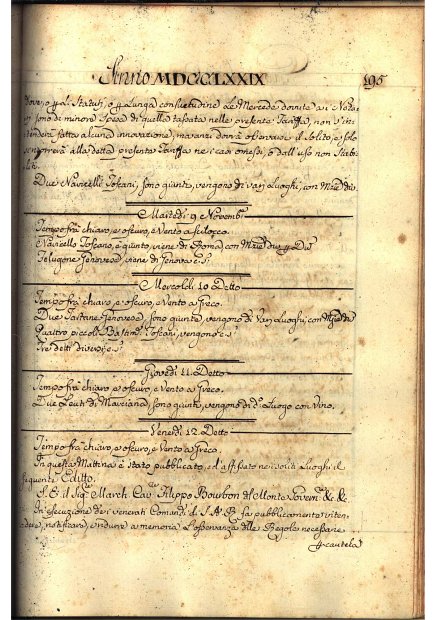 Anno MDCCLXXIX 195
dove, o p L. Statuti, o p Lunga consuetudine Le Mercedi dovute a i Nota
ri sono di minore Spesa di quella tassata nella presente Tariffa, non s'in
tenderà fatta alcuna innovazione, ma anzi dovrà osservarsi il solito, e solo
si ricorrerà alla detta presente Tariffa ne i casi omessi, o dall'uso non stabi
liti.
Due Navicelli Toscani, sono giunti, vengono di varj Luoghi, con
Martedì 9 Novembre
Tempo frà chiaro, e oscuro, e Vento a Scilocco.
Navicello Toscano, è giunto, viene di Roma, con
Felugone Genovese, viene di Genova e S
Mercoldì 10 Detto
Tempo frà chiaro, e oscuro, e Vento a Greco.
Due Genovesi, sono giunti, vengono di varj Luoghi, con
Quattro piccoli Bastim. Toscani, vengono e S
Tre detti diversi e S
Giovedì 11 Detto
Tempo frà chiaro, e oscuro, e Vento a Greco.
Due Leuti di Marciana, sono giunti, vengono di d. Luogo con Vino.
Venerdì 12 Detto
Tempo frà chiaro, e oscuro, e Vento a Greco.
In questa Mattina è stato pubblicato, ed affissato nei soliti Luoghi il
seguente Editto.
S. E. il Sig. March. Cav. Filippo Bourbon del Monte Govern. &c. &c.
In esecuzione dei venerati Comandi di S. A. R. fa pubblicamente inten
dere, notificare, e ridurre a memoria L'osservanza delle Regole necessarie
p cautela